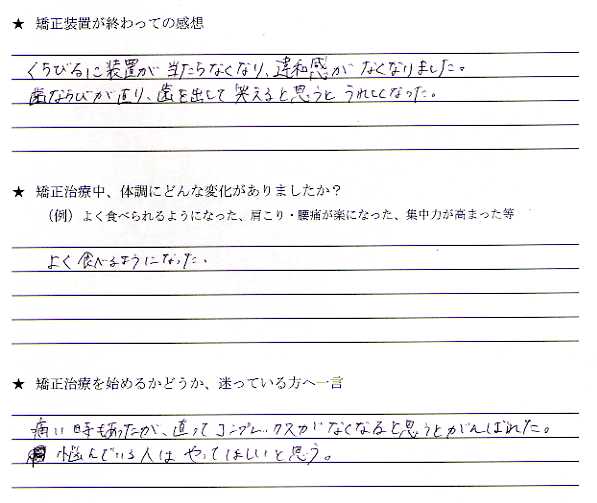 ★ 矯正装置が終わっての感想
くちびるに装置が当たらなくなり、違和感がなくなりました。
歯ならびが直り、歯を出して笑えると思うとうれしくなった。
★ 矯正治療中、体調にどんな変化がありましたか？
（例）よく食べられるようになった、肩こり・腰痛が楽になった、集中力が高まった等
よく食べるようになった。
★ 矯正治療を始めるかどうか、迷っている方へ一言
痛い時もあったが、直ってコンプレックスがなくなると思うとがんばれた。
悩んでいる人はやってほしいと思う。